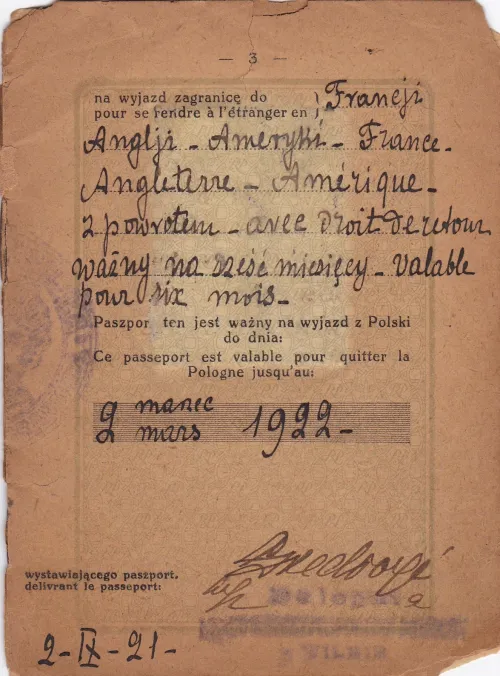 — 3 —
na wyjazd zagranicę do
pour se rendre à l'étranger en } Francji
Anglji - Ameryki - France -
Angleterre - Amérique -
z powrotem - avec droit de retour
ważny na sześć miesięcy - valable
pour six mois -
Paszpor ten jest ważny na wyjazd z Polski
do dnia:
Ce passeport est valable pour quitter la
Pologne jusqu'au:
2 marzec
mars 1922 -
wystawiającego paszport.
delivrant le passeport:
Delegat
w WILNIE
2-IX-21-